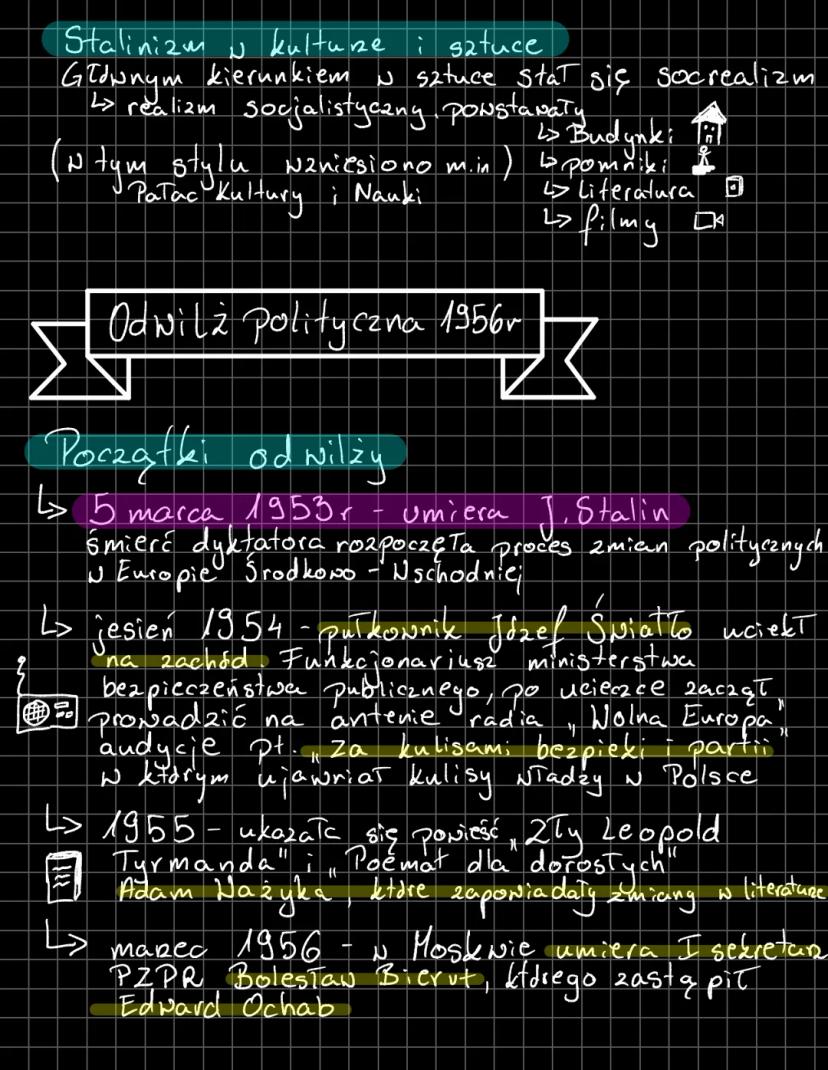 Stalinizm w kulturze i sztuce
Głównym kierunkiem w sztuce stał się socrealizm
↳ realizm socjalistyczny. powstawały
↳ Budynki
(w tym stylu wzniesiono m.in)
↳ pomniki
Pałac Kultury i Nauki
↳ literatura
↳ filmy
Odwilż polityczna 1956r
Początki odwilży
↳ 5 marca 1953r - umiera J. Stalin
śmierć dyktatora rozpoczęła proces zmian politycznych
w Europie Środkowo - Wschodniej
↳ jesień 1954 - pułkownik Józef Światło uciekł
na zachód. Funkcjonariusz ministerstwa
bezpieczeństwa publicznego, po ucieczce zaczął
prowadzić na antenie radia „Wolna Europa"
audycje pt. „Za kulisami bezpieki i partii
w którym ujawniał kulisy władzy w Polsce
↳ 1955 - ukazała się powieść „Zły Leopold
Tyrmanda" i „Poemat dla dorosłych"
Adam Ważyka, które zapowiadały zmianę w literaturze
↳ marzec 1956 - w Moskwie umiera I sekretarz
PZPR Bolesław Bierut, którego zastąpił
Edward Ochab